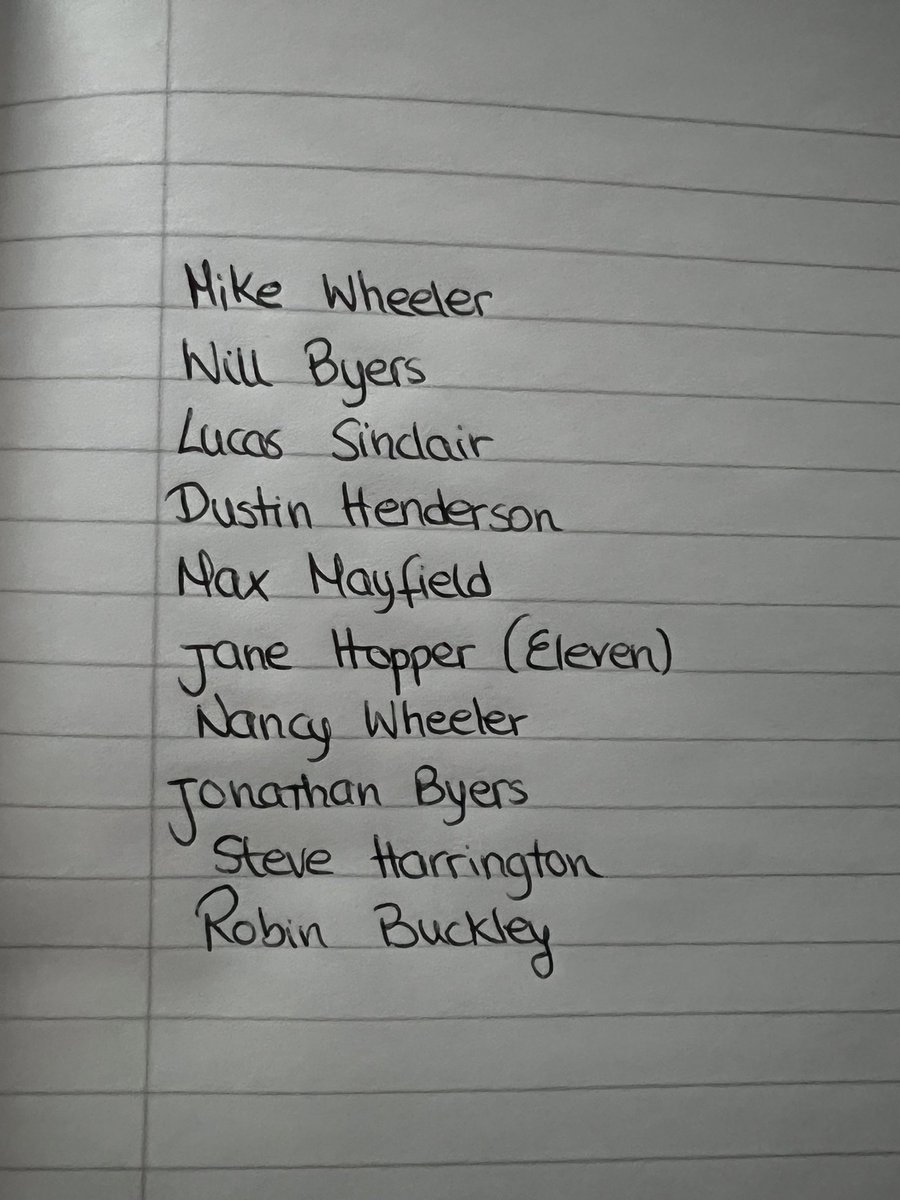 Mike Wheeler
Will Byers
Lucas Sinclair
Dustin Henderson
Max Mayfield
Jane Hopper (Eleven)
Nancy Wheeler
Jonathan Byers
Steve Harrington
Robin Buckley